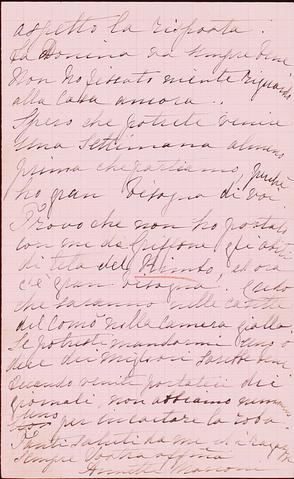 aspetto la risposta.
La Donina va sempre bene
Non ho fissato niente riguardo
alla casa ancora..
Spero che potrete venire
una settimana almeno
prima che partiamo, perchè
ho gran bisogno di voi
Trovo che non ho portato
con me da Griffone gli abiti
di tela del Bimbo, ed ora
c'è gran bisogno. Credo
che saranno nelle cantere
del comò nella camera gialla.
Se potreste mandarmi uno o
due dei migliori sarebbe bene
Quando venite portateci dei
giornali, non abbiamo nemmeno
uno per incartare la roba.
Tanti saluti da me e i ragazzi
Sempre Vostra affña